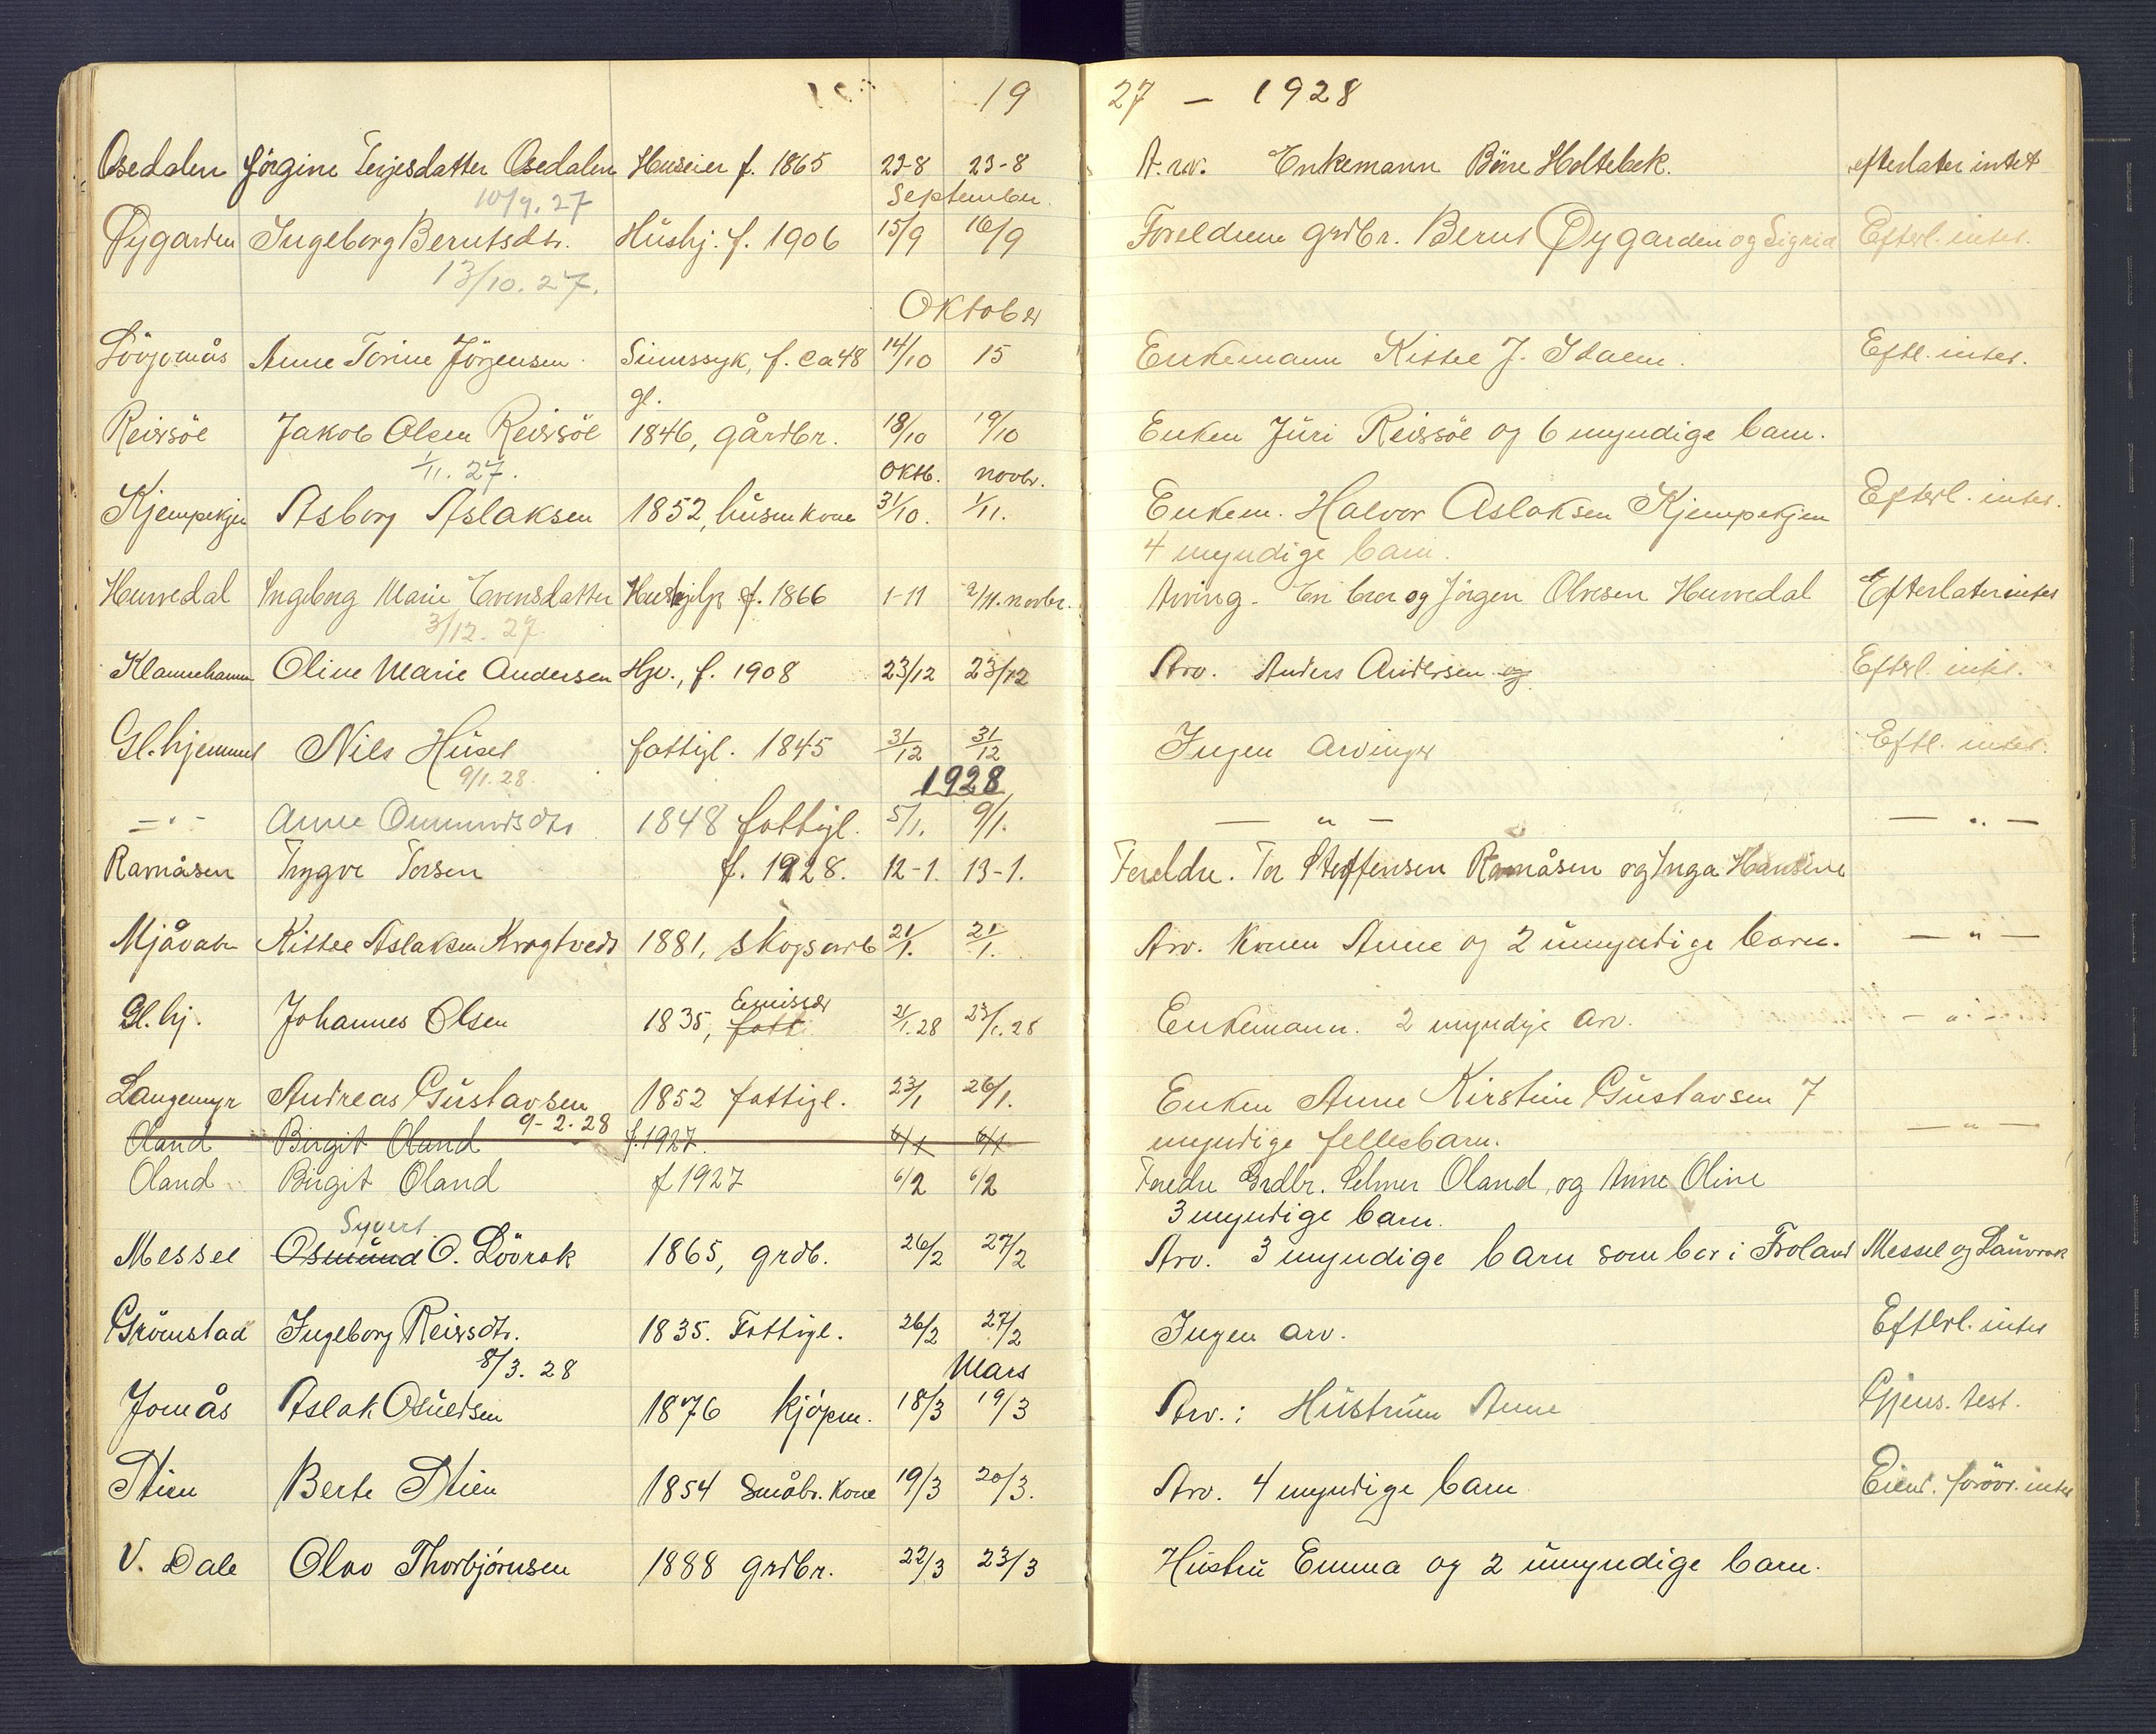 19 27 - 1928
Osedalen Jörgine Terjesdatter Osedalen Huseier f. 1865 22-8 23-8 Arv. Enkemann Böre Holtebek. efterlater intet
10/9. 27 September
Øygarden Ingeborg Berntsdtr. Hüshj. f. 1906 15/9 16/9 Foreldrene grdbr. Bernt Øygarden og Sigrid Efterl. intet.
13/10. 27.
Oktober
Anne Torine Jörgensen Sinnssyk, f. ca 48 14/10 15 Enkemann Kittel J. Eftl. intet.
gl.
Reirsöl Jakob Olsen Reirsöl 1846, gårdbr. 18/10 19/10 Enken Jüri Reirsöl og 6 myndige barn.
1/11. 27. oktb. novbr.
Kjempekjen Asborg Aslaksen 1852, hüsm kone 31/10. 1/11. Enkem. Halvor Aslaksen Kjempekjen Efterl. intet.
4 myndige barn.
Hurvedal Ingeborg Marie Evensdatter Hushjelp f. 1866 1-11 2/11. novbr. Arving. En bror og Jörgen Olvesen Hurvedal Efterlater intet
3/12. 27.
Klammehamm Oline Marie Andersen Hjv., f. 1908 23/12 23/12 Arv. Anders Andersen og Efterl. intet.
Gl. hjemmet Nils Hüset fattigl. 1845 31/12 31/12 Ingen arvinger Eftl. intet.
9/1. 28. 1928
-"- Anne Ommundsdtr 1848 fattigl. 5/1. 9/1. -"- -"-
Ramåsen Trygve Torsen f. 1928. 12-1. 13-1. Foreldre. Tor Steffensen Ramåsen og Inga Hansine
Mjåvatn Kittel Aslaksen Krogtvedt 1881, skogsarb 21/1. 21/1. Arv. Konen Anne og 2 ümyndige barn. -"-
Emissær
Gl. hj. Johannes Olsen 1835, fatt 21/1. 28 23/1. 28 Enkemann. 2 myndige arv. -"-
Langemyr Andreas Güstavsen 1852 fattigl. 23/1 26/1. Enken Anne Kirstine Güstavsen 7
9-2-28
Oland Birgit Oland f. 1927. 6/1 6/1 myndige fellesbarn. -"-
Oland Birgit Oland f 1927 6/2 6/2 Foredre Grdbr. Selmer Oland, og Anne Oline
Sygert 3 myndige barn.
Messel Osmünd O. Lövrak 1865, grdb. 26/2 27/2 Arv. 3 myndige barn som bor i Froland Messel og Laüvrak
Grömstad Ingeborg Reirsdtr. 1835. Fattigl. 26/2 27/2 Ingen arv. Efterl. intet
8/3. 28 Mars
Jomås Aslak Osüldsen 1876 kjöpm. 18/3 19/3 Arv.: Hüstrün Anne Gjens. test.
Stien Berte Stien 1854 Småbr. kone 19/3 20/3. Arv. 4 myndige barn Eiend. forövr. intet
V. Dale Olav Thorbjörnsen 1888 grdbr. 22/3 23/3 Hüstrü Emma og 2 ümyndige barn.